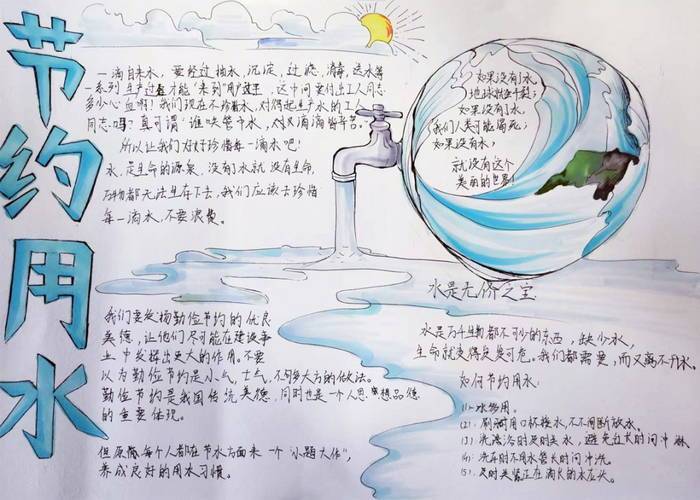 节约用水
一滴自来水，要经过抽水，沉淀，过滤，消毒，送水等
一系列生产过程才能"来到"用户家里，这中间要付出工人同志
多少心血啊！我们现在不珍惜水，对得起生产水的工人
同志吗？真可谓"谁呋管中水，滴滴皆辛苦。"
所以让我们好好珍惜每一滴水吧！
水，是生命的源泉，没有了水就没有生命，
万物都无法生存下去，我们应该去珍惜
每一滴水，不要浪费。
如果没有了水，
地球就会干裂；
如果没有了水，
我们人类可能渴死；
如果没有水，
就没有这个
美丽的世界！
水是无价之宝
水是万千生物都不可少的东西，缺少水，
生命就变得岌岌可危。我们都需要，而又离不开水。
如何节约用水：
(1)：水多用。
(2)：刷牙时用口杯接水，不不间断放水。
(3)：洗澡浴时及时关水，避免过长时间冲淋
(4)：洗车时不用水管长时间冲洗。
(5)：及时关紧正在滴长的水龙头。
我们要发扬勤俭节约的优良
美德，让他们尽可能在建设事
业中发挥出更大的作用。不要
以为勤俭节约是小气，土气，不够大方的做法。
勤俭节约是我国传统美德，同时也是一个人思想品德
的重要体现。
但愿每个人都在节水方面来一个"小题大作"，
养成良好的用水习惯。